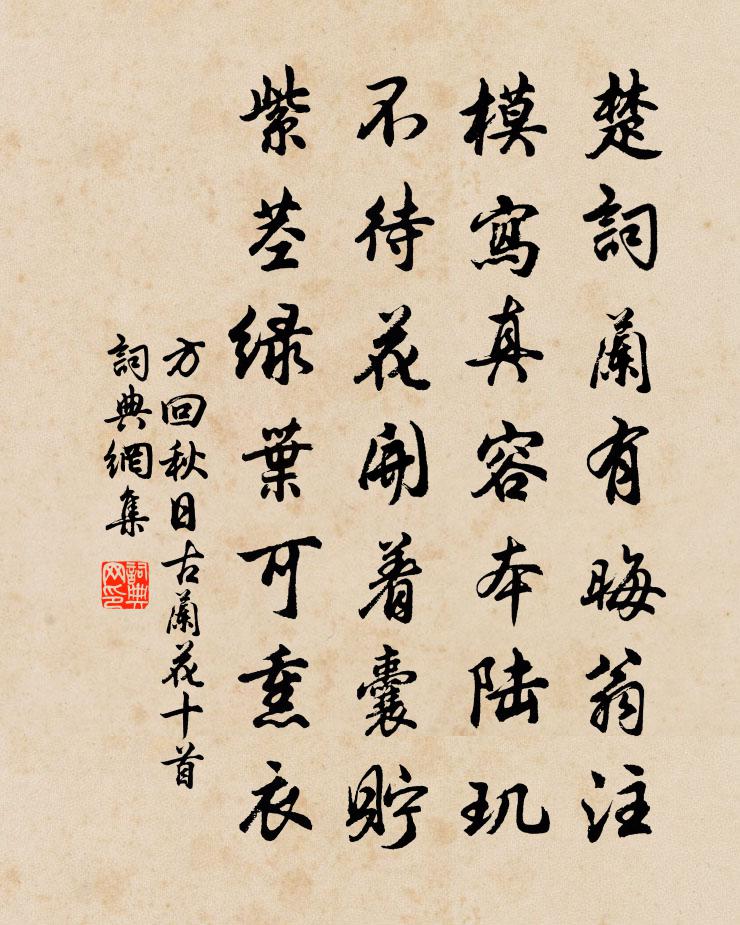 楚詞蘭有晦翁注
模寫真容本陆玑
不待花開着囊貯
紫茎绿葉可熏衣
方回秋日古蘭花十首
詞典網集
詞典网印